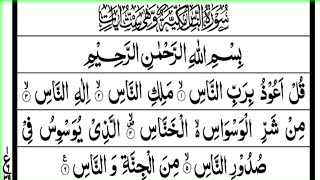 سُوْرَةُ النَّاسِ مَكِّيَّةٌ وَّهِيَ سِتُّ اٰيَاتٍ
بِسْمِ اللّٰهِ الرَّحْمٰنِ الرَّحِيْمِ
قُلْ اَعُوْذُ بِرَبِّ النَّاسِ ۙ۱ مَلِكِ النَّاسِ ۙ۲ اِلٰهِ النَّاسِ ۙ۳
مِنْ شَرِّ الْوَسْوَاسِ ۙ۬ الْخَنَّاسِ ۪ۙ۴ الَّذِىْ يُوَسْوِسُ فِىْ
صُدُوْرِ النَّاسِ ۙ۵ مِنَ الْجِنَّةِ وَ النَّاسِ ۠۶